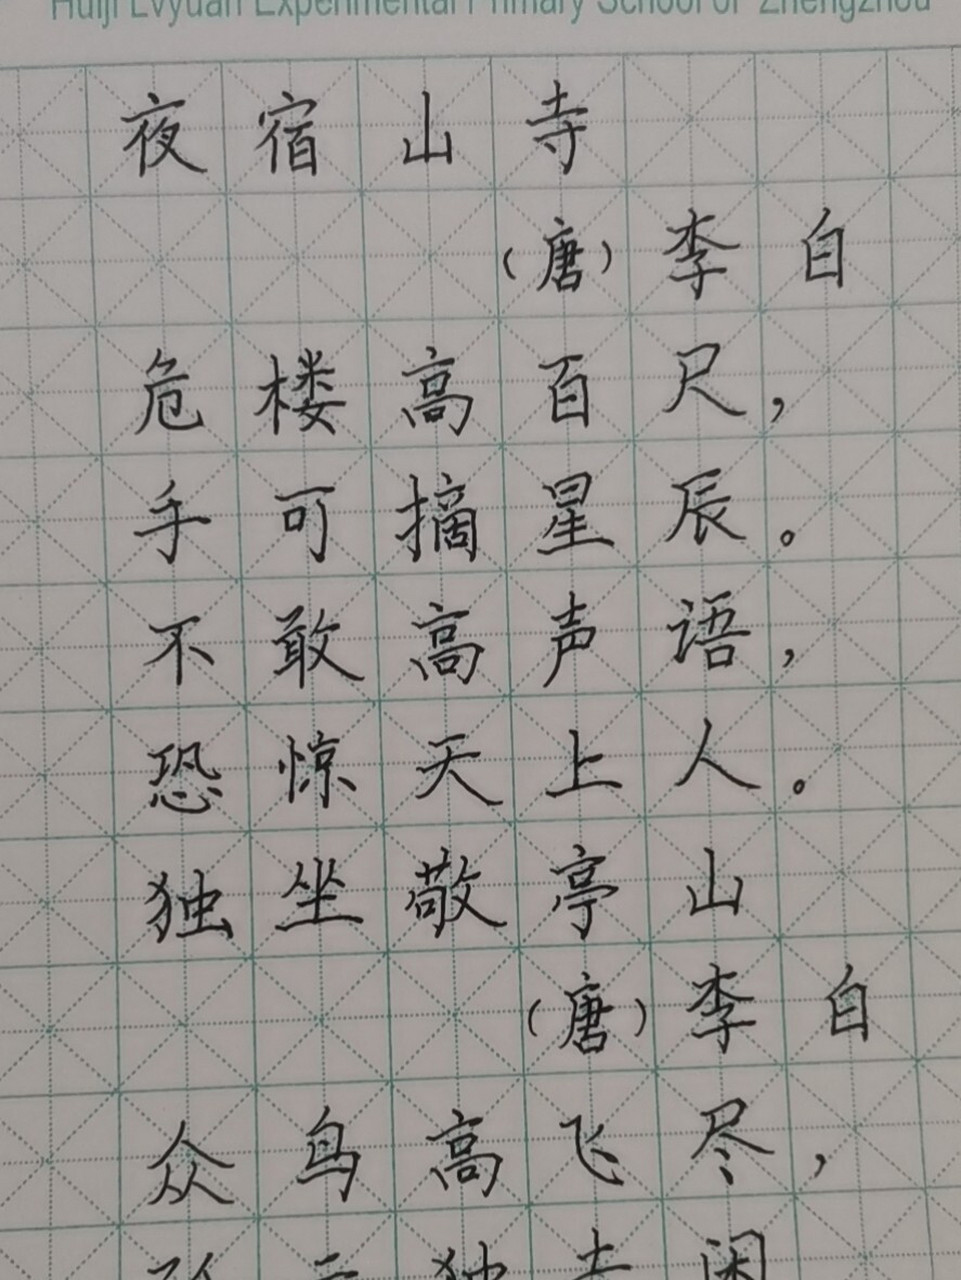 Huiji Lvyuan Experimental Primary School of Zhengzhou
夜宿山寺
(唐)李白
危楼高百尺，
手可摘星辰。
不敢高声语，
恐惊天上人。
独坐敬亭山
(唐)李白
众鸟高飞尽，
孤云独去闲